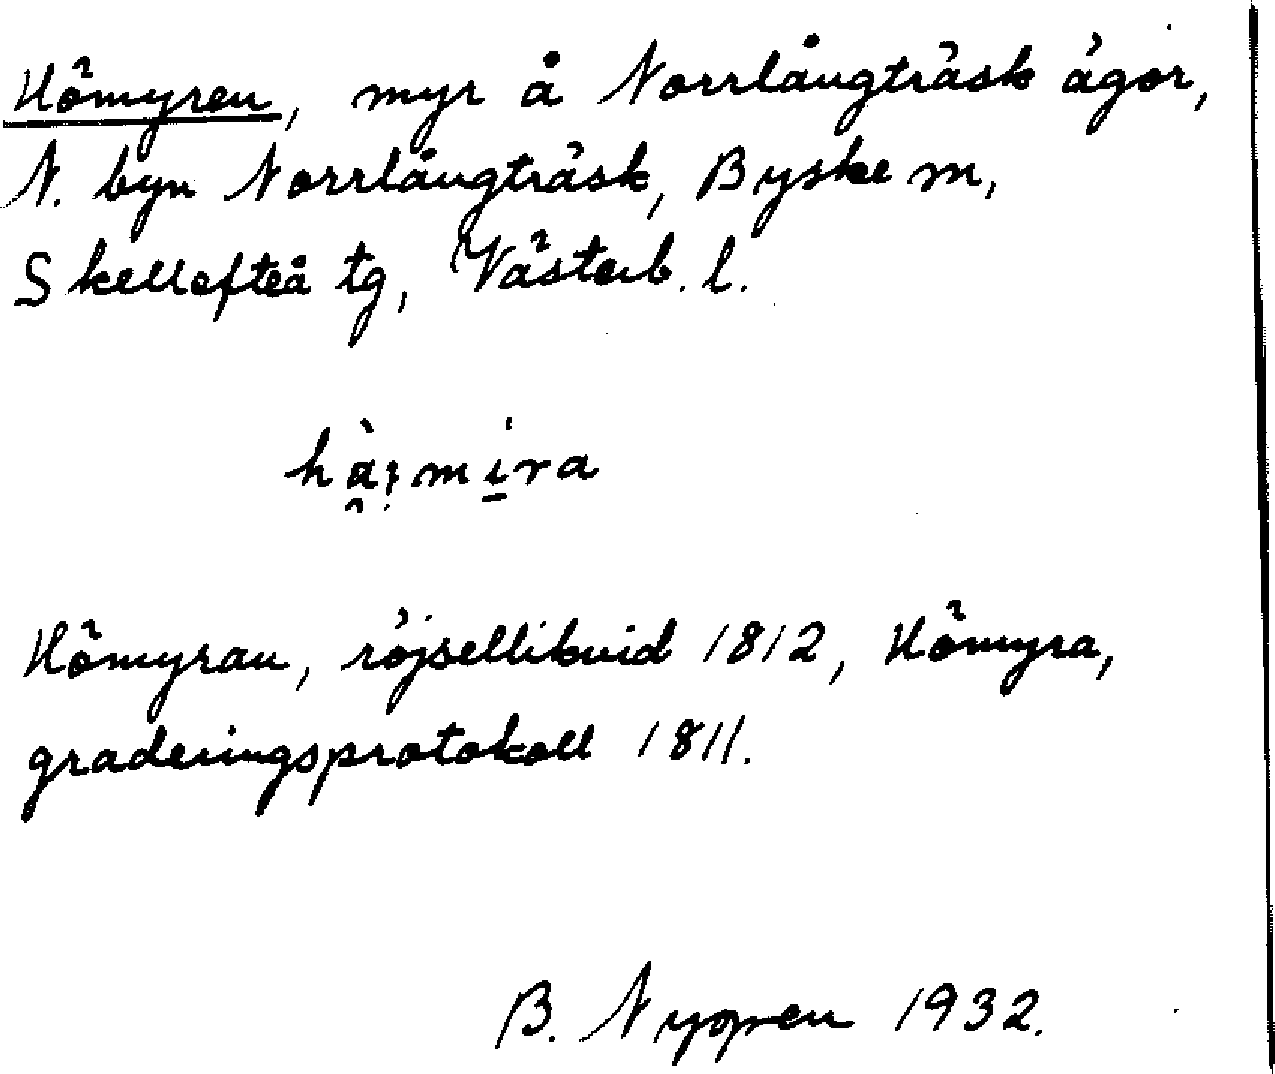 Hömyren, myr å Norrlångträsk ägor,
N. byn Norrlångträsk, Byske sn,
Skellefteå tg, Västerb. l.
Hömyran, röjsellikvid 1812, Hömyra,
graderingsprotokoll 1811.
B. Nygren 1932.